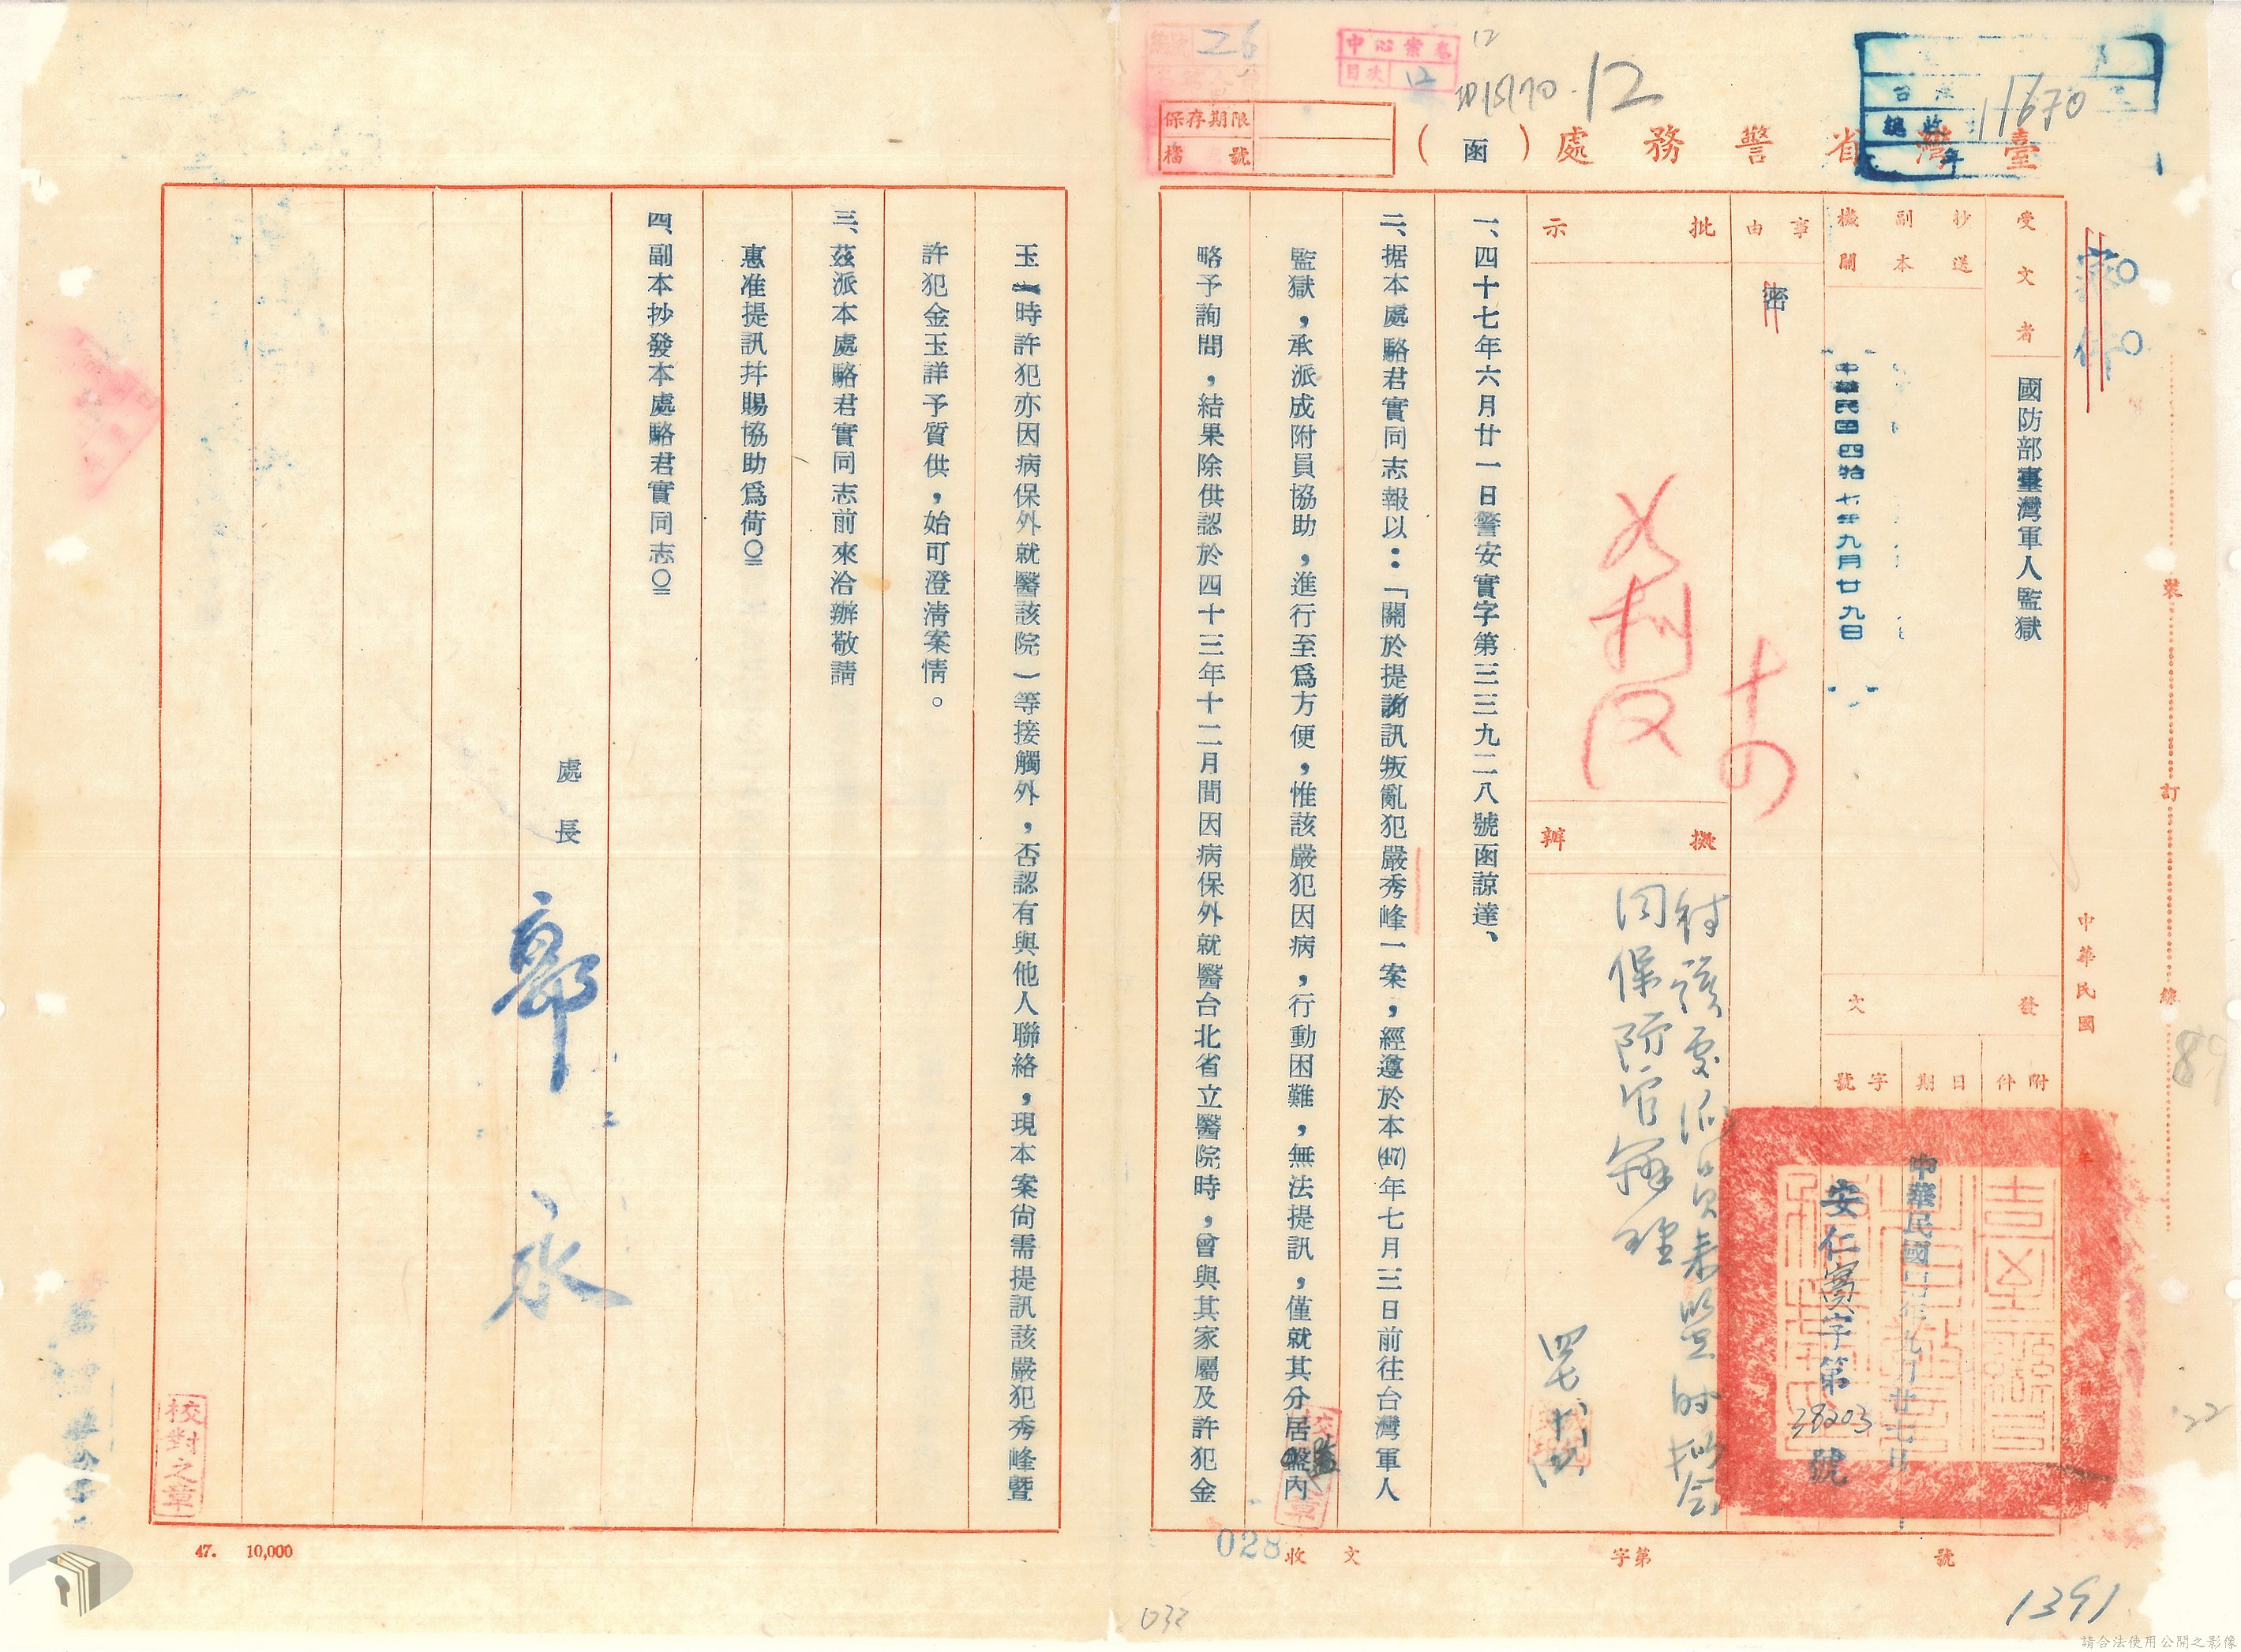 臺灣省警務處（函）
保存期限
檔號
中心案卷
目次 12
12
26
11670
受文者
國防部臺灣軍人監獄
抄送副本機關
中華民國四拾七年九月廿九日
發文
附件
日期
字號
中華民國
中華民國 年九月廿七日
安仁實字第38203號
事由
密
批示
擬辦
待該處派員來監時擬會
同保防官辦理
一、四十七年六月廿一日警安實字第三三九二八號函諒達、
二、据本處駱君實同志報以：「關於提訊叛亂犯嚴秀峰一案，經遵於本(47)年七月三日前往台灣軍人
監獄，承派成附員協助，進行至爲方便，惟該嚴犯因病，行動困難，無法提訊，僅就其分居監內
略予詢問，結果除供認於四十三年十二月間因病保外就醫台北省立醫院時，曾與其家屬及許犯金
玉（時許犯亦因病保外就醫該院）等接觸外，否認有與他人聯絡，現本案尙需提訊該嚴犯秀峰暨
許犯金玉詳予質供，始可澄淸案情。
三、茲派本處駱君實同志前來洽辦敬請
惠准提訊幷賜協助爲荷
四、副本抄發本處駱君實同志
處長
郭永
校對之章
裝
訂
線
收文
字第
號
028
032
1391
89
22
47. 10,000
請合法使用公開之影像